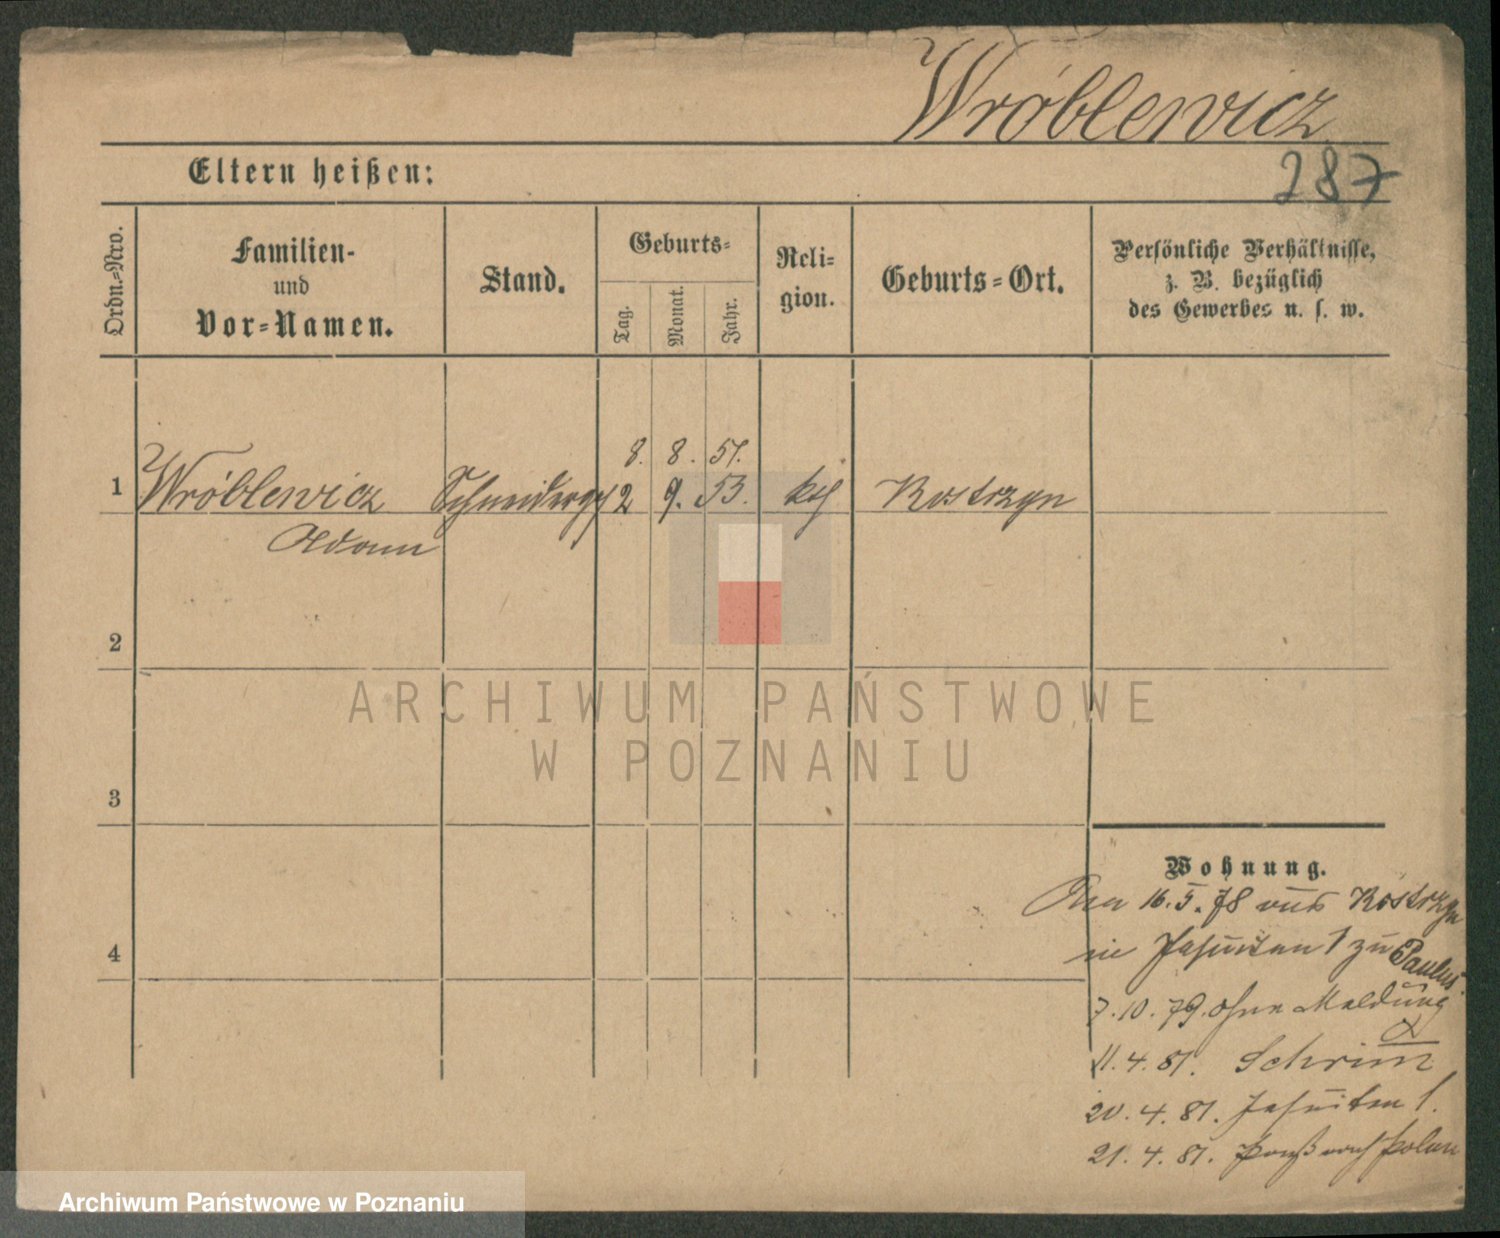 Wróblewicz
Eltern heißen:
287
Ordn.-Nro.
Familien-
und
Vor-Namen.
Stand.
Geburts-
Tag.
Monat.
Jahr.
Reli-
gion.
Geburts-Ort.
Persönliche Verhältnisse,
z. B. bezüglich
des Gewerbes u. s. w.
8. 8. 51.
1 Wróblewicz Schneiderges 2 9. 53. kth Kostrzyn
Adam
2
ARCHIWUM PAŃSTWOWE
W POZNANIU
3
Wohnung.
16.5.78 aus Kostrzyn
4
in Jesuiten 1 zu Paulus.
7.10.79. ohne Meldung
11.4.81. Schrimm
20.4.81. Jesuiten 1.
21.4.81. nach Polen
Archiwum Państwowe w Poznaniu